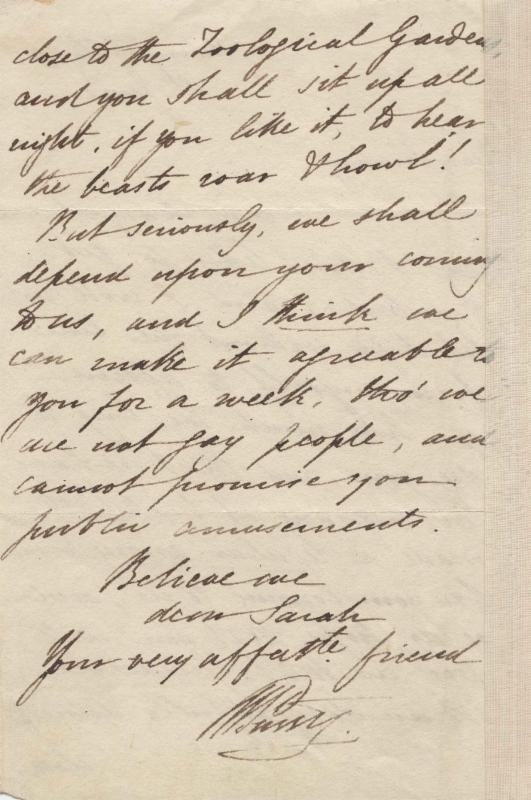 close to the Zoological Gardens,
and you shall sit up all
night, if you like it, to hear
the beasts roar & howl!
But seriously, we shall
depend upon your coming
to us, and I think we
can make it agreeable to
you for a week, tho' we
are not gay people, and
cannot promise you
public amusements.
Believe me
dear Sarah
Your very affecte. friend